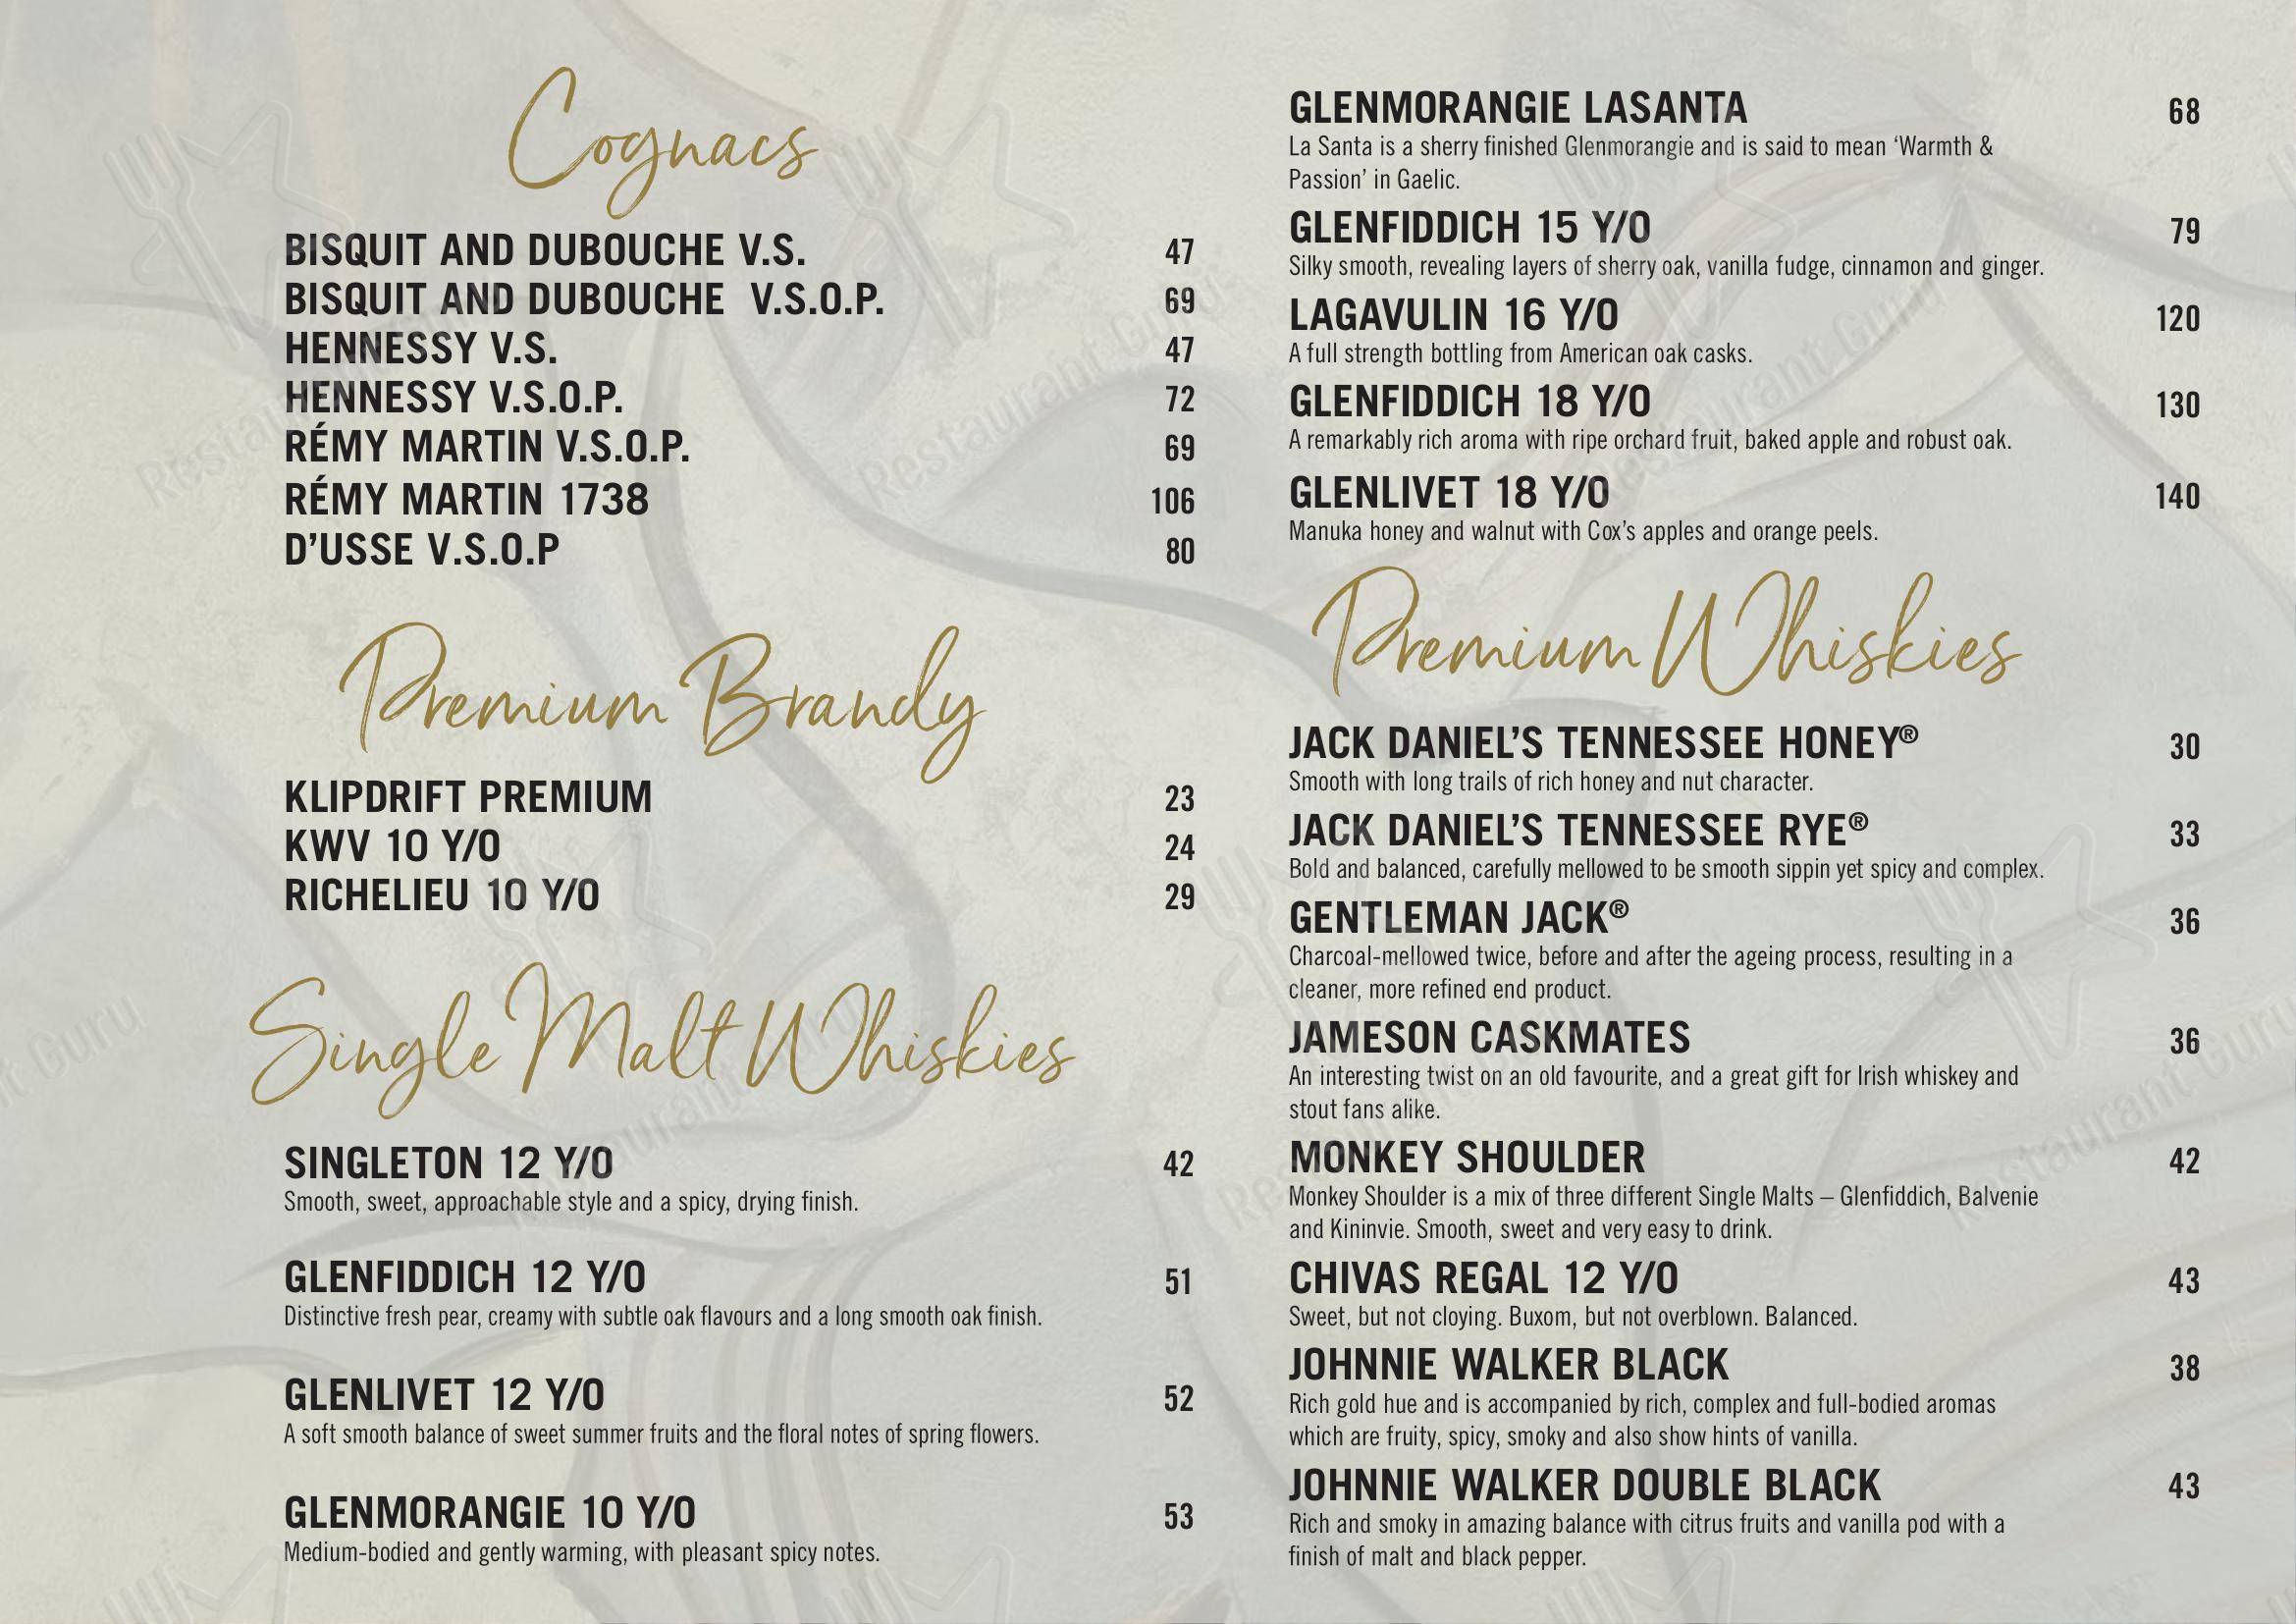 Cognacs
BISQUIT AND DUBOUCHE V.S. 47
BISQUIT AND DUBOUCHE V.S.O.P. 69
HENNESSY V.S. 47
HENNESSY V.S.O.P. 72
RÉMY MARTIN V.S.O.P. 69
RÉMY MARTIN 1738 106
D’USSE V.S.O.P 80
Premium Brandy
KLIPDRIFT PREMIUM 23
KWV 10 Y/O 24
RICHELIEU 10 Y/O 29
Single Malt Whiskies
SINGLETON 12 Y/O 42
Smooth, sweet, approachable style and a spicy, drying finish.
GLENFIDDICH 12 Y/O 51
Distinctive fresh pear, creamy with subtle oak flavours and a long smooth oak finish.
GLENLIVET 12 Y/O 52
A soft smooth balance of sweet summer fruits and the floral notes of spring flowers.
GLENMORANGIE 10 Y/O 53
Medium-bodied and gently warming, with pleasant spicy notes.
GLENMORANGIE LASANTA 68
La Santa is a sherry finished Glenmorangie and is said to mean ‘Warmth &
Passion’ in Gaelic.
GLENFIDDICH 15 Y/O 79
Silky smooth, revealing layers of sherry oak, vanilla fudge, cinnamon and ginger.
LAGAVULIN 16 Y/O 120
A full strength bottling from American oak casks.
GLENFIDDICH 18 Y/O 130
A remarkably rich aroma with ripe orchard fruit, baked apple and robust oak.
GLENLIVET 18 Y/O 140
Manuka honey and walnut with Cox’s apples and orange peels.
Premium Whiskies
JACK DANIEL’S TENNESSEE HONEY® 30
Smooth with long trails of rich honey and nut character.
JACK DANIEL’S TENNESSEE RYE® 33
Bold and balanced, carefully mellowed to be smooth sippin yet spicy and complex.
GENTLEMAN JACK® 36
Charcoal-mellowed twice, before and after the ageing process, resulting in a
cleaner, more refined end product.
JAMESON CASKMATES 36
An interesting twist on an old favourite, and a great gift for Irish whiskey and
stout fans alike.
MONKEY SHOULDER 42
Monkey Shoulder is a mix of three different Single Malts – Glenfiddich, Balvenie
and Kininvie. Smooth, sweet and very easy to drink.
CHIVAS REGAL 12 Y/O 43
Sweet, but not cloying. Buxom, but not overblown. Balanced.
JOHNNIE WALKER BLACK 38
Rich gold hue and is accompanied by rich, complex and full-bodied aromas
which are fruity, spicy, smoky and also show hints of vanilla.
JOHNNIE WALKER DOUBLE BLACK 43
Rich and smoky in amazing balance with citrus fruits and vanilla pod with a
finish of malt and black pepper.
Restaurant Guru
Restaurant Guru
Restaurant Guru
Restaurant Guru